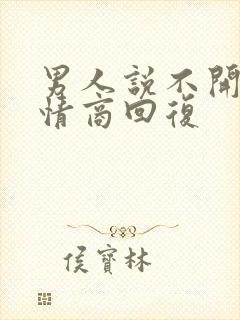 男人說不開
情商回復
侯寶林